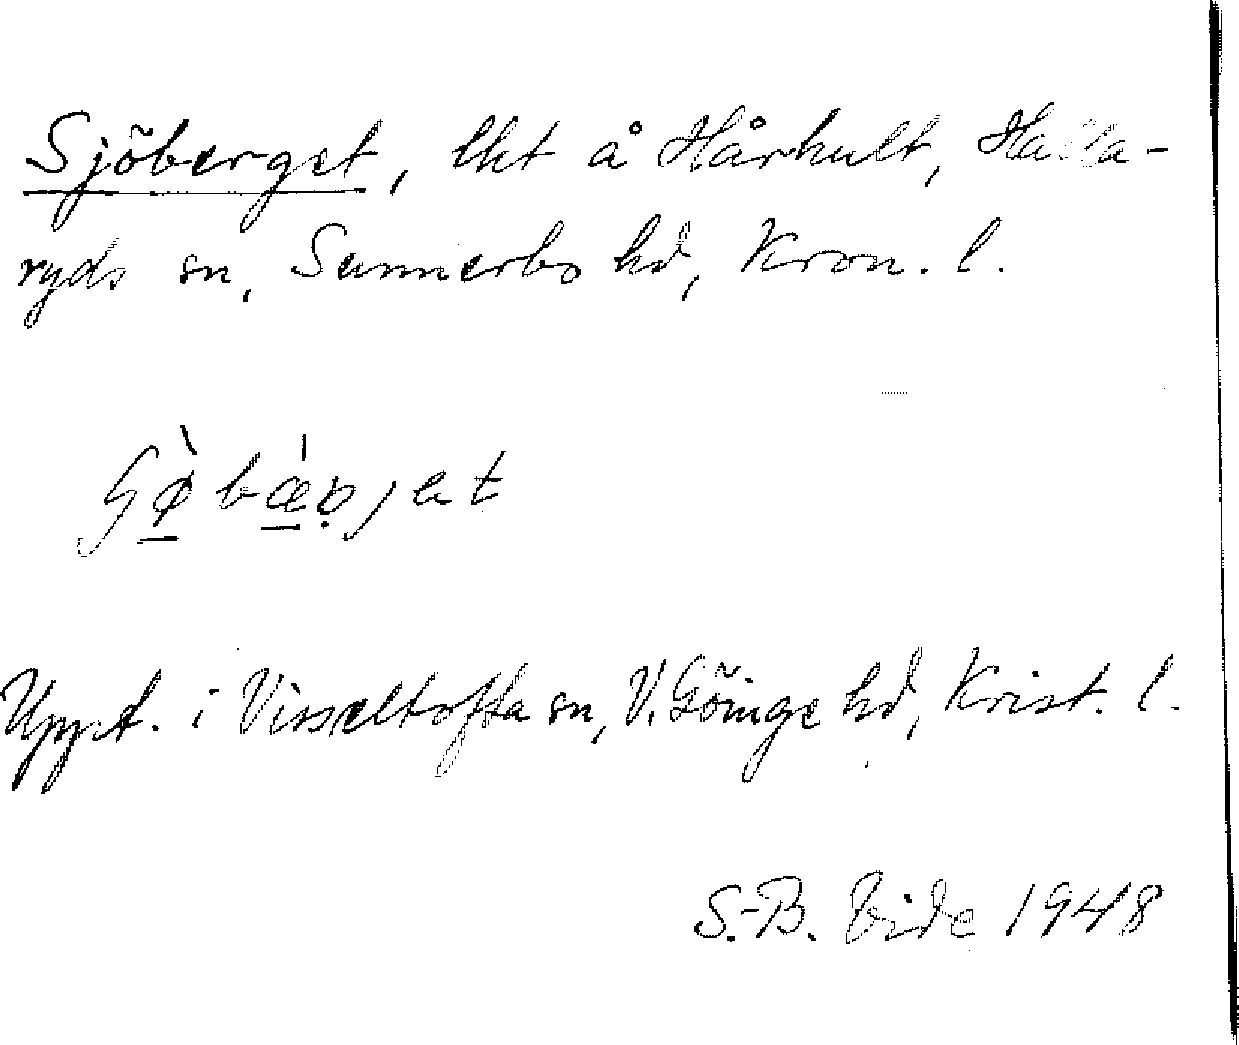 Sjöberget, lht å Hårhult, Halla-
ryds sn, Sunnerbo hd, Kron. l.
Uppt. i Visseltofta sn, V. Göinge hd, Krist. l.
S.-B. Vide 1948